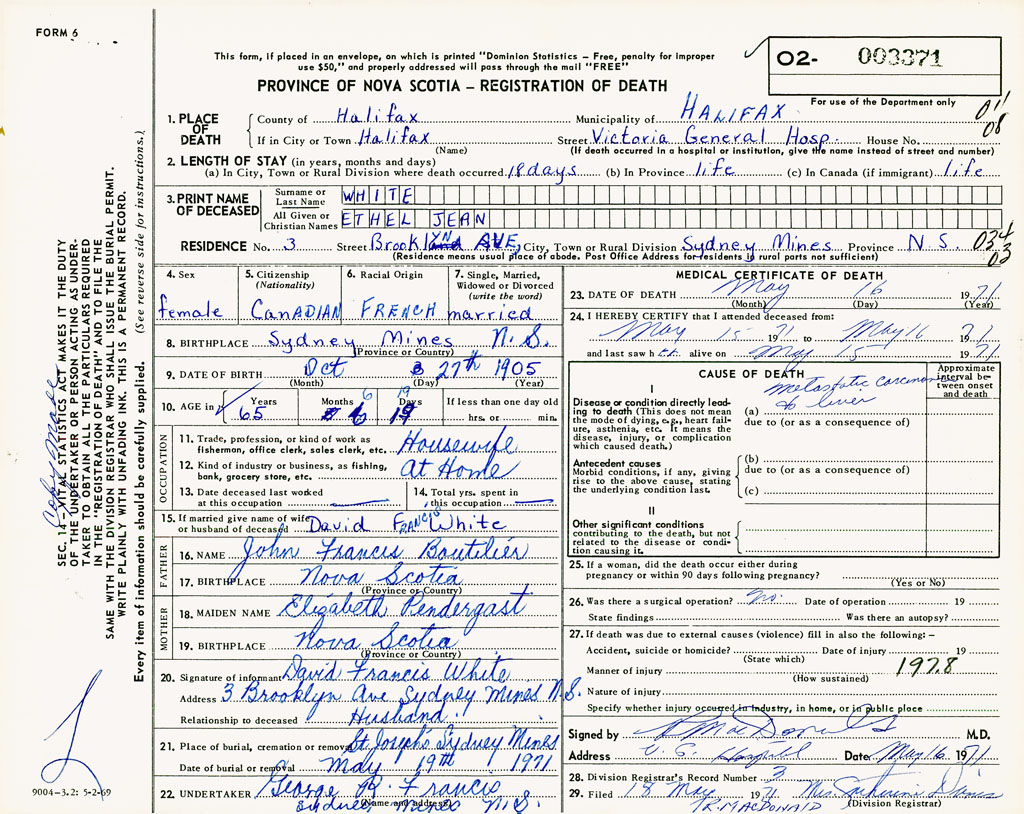 FORM 6
This form, if placed in an envelope, on which is printed "Dominion Statistics – Free, penalty for improper
use $50," and properly addressed will pass through the mail "FREE"
PROVINCE OF NOVA SCOTIA – REGISTRATION OF DEATH
02- 003371
For use of the Department only
1. PLACE OF DEATH
County of Halifax Municipality of HALIFAX 01
08
If in City or Town Halifax Street Victoria General Hosp. House No.
(Name) (If death occurred in a hospital or institution, give the name instead of street and number)
2. LENGTH OF STAY (in years, months and days)
(a) In City, Town or Rural Division where death occurred 18 days (b) In Province life (c) In Canada (if immigrant) life
3. PRINT NAME OF DECEASED
Surname or Last Name WHITE
All Given or Christian Names ETHEL JEAN
RESIDENCE No. 3 Street Brooklyn AVE, City, Town or Rural Division Sydney Mines Province N.S. 034
03
(Residence means usual place of abode. Post Office Address for residents in rural parts not sufficient)
4. Sex 5. Citizenship 6. Racial Origin 7. Single, Married,
(Nationality) Widowed or Divorced
(write the word)
female CanADIAN FRENCH married
8. BIRTHPLACE Sydney Mines N.S.
(Province or Country)
9. DATE OF BIRTH Oct 27th 1905
(Month) (Day) (Year)
10. AGE in Years Months Days If less than one day old
65 6 19 hrs. or min.
6 19
OCCUPATION
11. Trade, profession, or kind of work as Housewife
fisherman, office clerk, sales clerk, etc.
12. Kind of industry or business, as fishing, at Home
bank, grocery store, etc.
13. Date deceased last worked 14. Total yrs. spent in
at this occupation this occupation
15. If married give name of wife David FRANCIS White
or husband of deceased
FATHER
16. NAME John Francis Boutilier
17. BIRTHPLACE Nova Scotia
(Province or Country)
MOTHER
18. MAIDEN NAME Elizabeth Pendergast
19. BIRTHPLACE Nova Scotia
(Province or Country)
20. Signature of informant David Francis White
Address 3 Brooklyn Ave Sydney Mines N.S.
Relationship to deceased Husband
21. Place of burial, cremation or removal St Joseph's Sydney Mines
Date of burial or removal May 19th 1971
22. UNDERTAKER George R. Francis
(Name and address)
Sydney Mines N.S.
MEDICAL CERTIFICATE OF DEATH
23. DATE OF DEATH May 16 1971
(Month) (Day) (Year)
24. I HEREBY CERTIFY that I attended deceased from:
May 15 1971 to May 16 1971
and last saw her alive on May 15 1971
CAUSE OF DEATH
Approximate interval between onset and death
I
Disease or condition directly leading to death (This does not mean the mode of dying, e.g., heart failure, asthenia, etc. It means the disease, injury, or complication which caused death.)
(a) Metastatic carcinoma
to liver
due to (or as a consequence of)
Antecedent causes
Morbid conditions, if any, giving rise to the above cause, stating the underlying condition last.
(b)
due to (or as a consequence of)
(c)
II
Other significant conditions
contributing to the death, but not related to the disease or condition causing it.
25. If a woman, did the death occur either during
pregnancy or within 90 days following pregnancy?
(Yes or No)
26. Was there a surgical operation? No. Date of operation 19
State findings Was there an autopsy?
27. If death was due to external causes (violence) fill in also the following: –
Accident, suicide or homicide? Date of injury 19
(State which)
Manner of injury 197.8
(How sustained)
Nature of injury
Specify whether injury occurred in industry, in home, or in public place
Signed by MacDonald M.D.
Address V. G. Hospital Date May 16 1971
28. Division Registrar's Record Number 3
29. Filed 18 May 1971 Mrs Catherine Davis
(Division Registrar)
R. MACDONALD
SEC. 14 – VITAL STATISTICS ACT MAKES IT THE DUTY
OF THE UNDERTAKER OR PERSON ACTING AS UNDER-
TAKER TO OBTAIN ALL THE PARTICULARS REQUIRED
IN THE "REGISTRATION OF DEATH" AND TO FILE THE
SAME WITH THE DIVISION REGISTRAR WHO SHALL ISSUE THE BURIAL PERMIT.
WRITE PLAINLY WITH UNFADING INK. THIS IS A PERMANENT RECORD.
Every item of information should be carefully supplied. (See reverse side for instructions.)
Copy Made
9004-3.2: 5-2-69